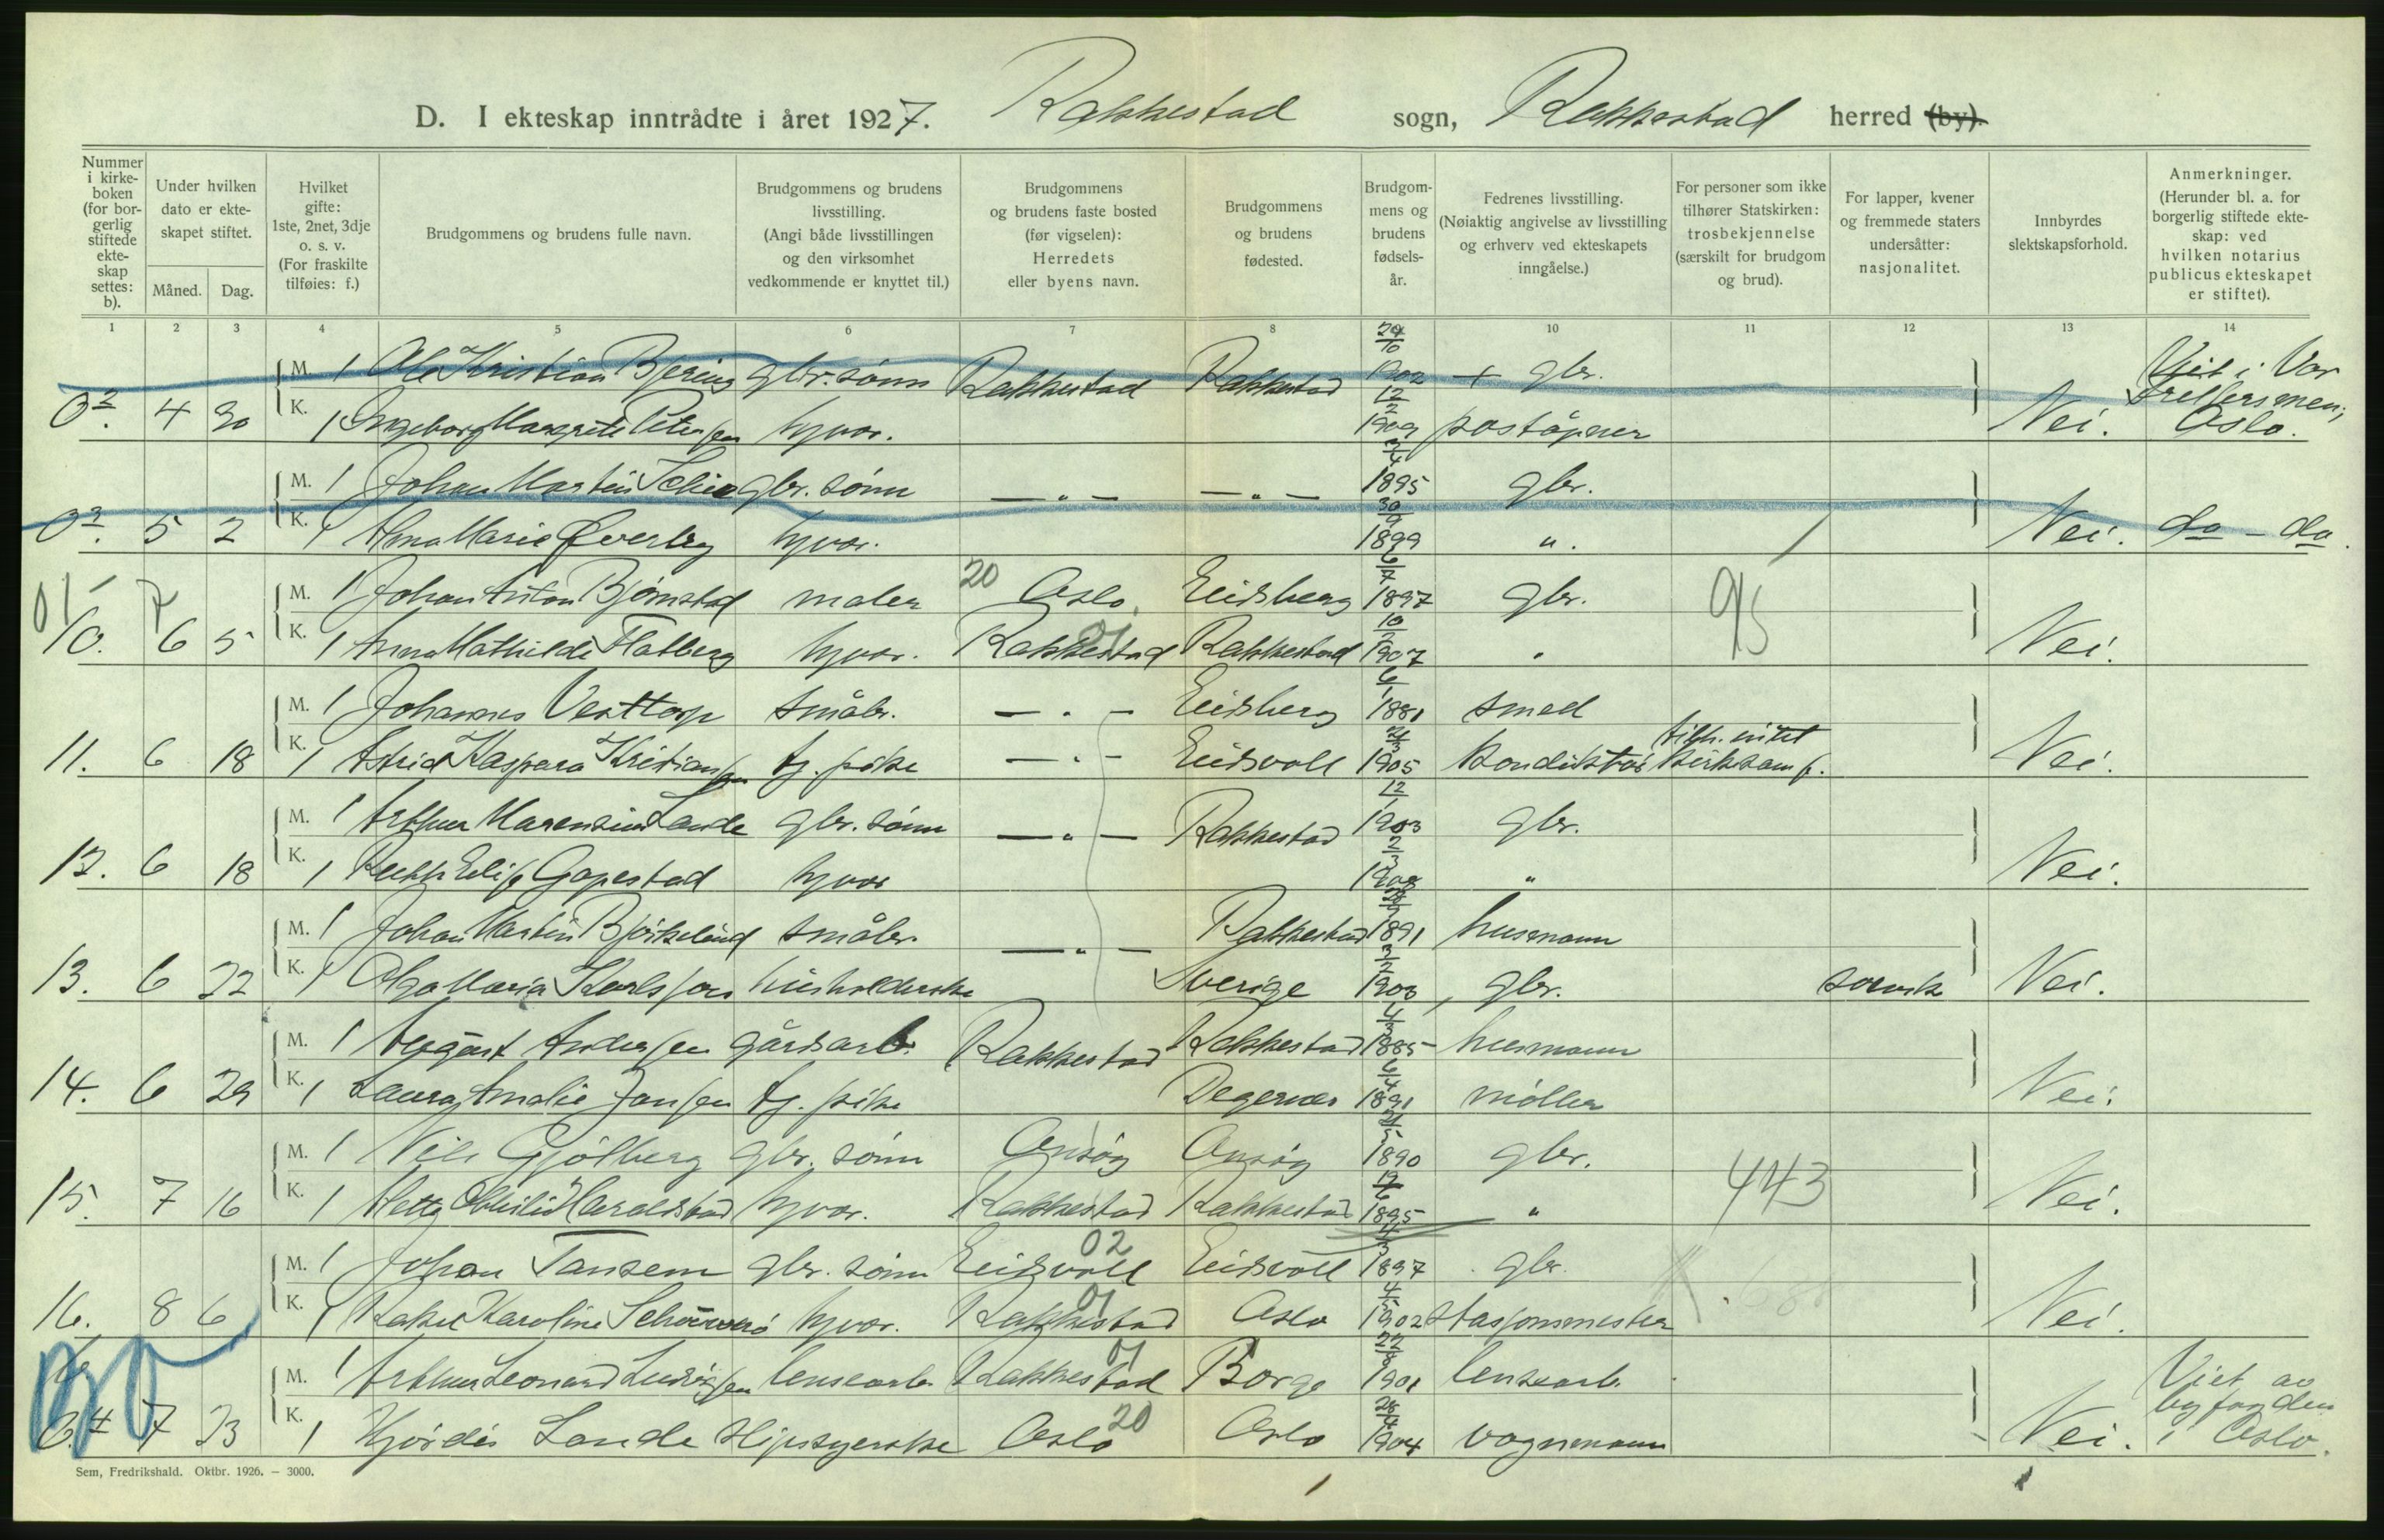 D. I ekteskap inntrådte i året 1927. Rakkestad sogn, Rakkestad herred (by).
Nummer i kirkeboken (for borgerlig stiftede ekteskap settes: b).
Under hvilken dato er ekteskapet stiftet.
Måned. Dag.
Hvilket gifte: 1ste, 2net, 3dje o. s. v. (For fraskilte tilføies: f.)
Brudgommens og brudens fulle navn.
Brudgommens og brudens livsstilling. (Angi både livsstillingen og den virksomhet vedkommende er knyttet til.)
Brudgommens og brudens faste bosted (før vigselen): Herredets eller byens navn.
Brudgommens og brudens fødested.
Brudgommens og brudens fødselsår.
Fedrenes livsstilling. (Nøiaktig angivelse av livsstilling og erhverv ved ekteskapets inngåelse.)
For personer som ikke tilhører Statskirken: trosbekjennelse (særskilt for brudgom og brud).
For lapper, kvener og fremmede staters undersåtter: nasjonalitet.
Innbyrdes slektskapsforhold.
Anmerkninger. (Herunder bl. a. for borgerlig stiftede ekteskap: ved hvilken notarius publicus ekteskapet er stiftet).
1 2 3 4 5 6 7 8 9 10 11 12 13 14
M. 1 Ole Kristian Bjering gbr. sønn Rakkestad Rakkestad 29/10 1902 + gbr. Viet i Vor
02. 4 30 K. 1 Ingeborg Margrete Petersen hjvær. 12/2 1909 poståpner Nei. Frelsers men; Oslo.
M. 1 Johan Martin Schie gbr. sønn — " — — " — 3/4 1895 gbr.
03. 5 2 K. 1 Anna Marie Øverby hjvær. 30/9 1899 ". Nei. do - do.
01 7 M. 1 Johan Anton Bjørnstad maler 20 Oslo Eidsberg 6/7 1897 gbr. 95
10. 6 5 K. 1 Anna Mathilde Flatberg hjvær. 01 Rakkestad Rakkestad 10/2 1907 " Nei.
M. 1 Johannes Vesttorp småbr. — " — Eidsberg 6/1 1881 smed
11. 6 18 K. 1 Astrid Kaspara Kristiansen tj. pike — " — Eidsvoll 21/3 1905 konduktør tilh. intet kirkesamf. Nei.
M. 1 Arthur Marensius Lande gbr. sønn — " — Rakkestad 12/1 1903 gbr.
12. 6 18 K. 1 Ruth Elise Gapestad hjvær 2/3 1908 " Nei.
M. 1 Johan Martin Bjørkelund småbr. — " — Rakkestad 1891 husmann
13. 6 22 K. 1 Olga Maria Karlsson husholderske Sverige 3/2 1903 gbr. svensk Nei.
M. 1 August Andersen gårdsarb. Rakkestad Rakkestad 4/3 1885 husmann
14. 6 29 K. 1 Laura Amalie Jansen tj. pike Degernes 6/4 1891 møller Nei.
M. 1 Nils Gjølberg gbr. sønn Onsøy Onsøy 21/5 1890 gbr. 443
15. 7 16 K. 1 Mette Othilie Haraldstad hjvær. Rakkestad Rakkestad 19/6 1895 " Nei.
M. 1 Johan Tansem gbr. sønn 02 Eidsvoll Eidsvoll 1897 gbr.
16. 8 6 K. 1 Rakel Karoline hjvær. 01 Rakkestad Oslo 4/5 1902 stasjonsmester Nei.
M. 1 Arthur Leonard Ludvigsen lensearb. 01 Rakkestad Borge 22/8 1901 lensearb. Viet av
7 23 K. 1 Hjørdis Lande slipssyerske Oslo 20 Oslo 28/4 1904 vognmann Nei. byfogden i Oslo.
Sem, Fredrikshald. Oktbr. 1926. — 3000.